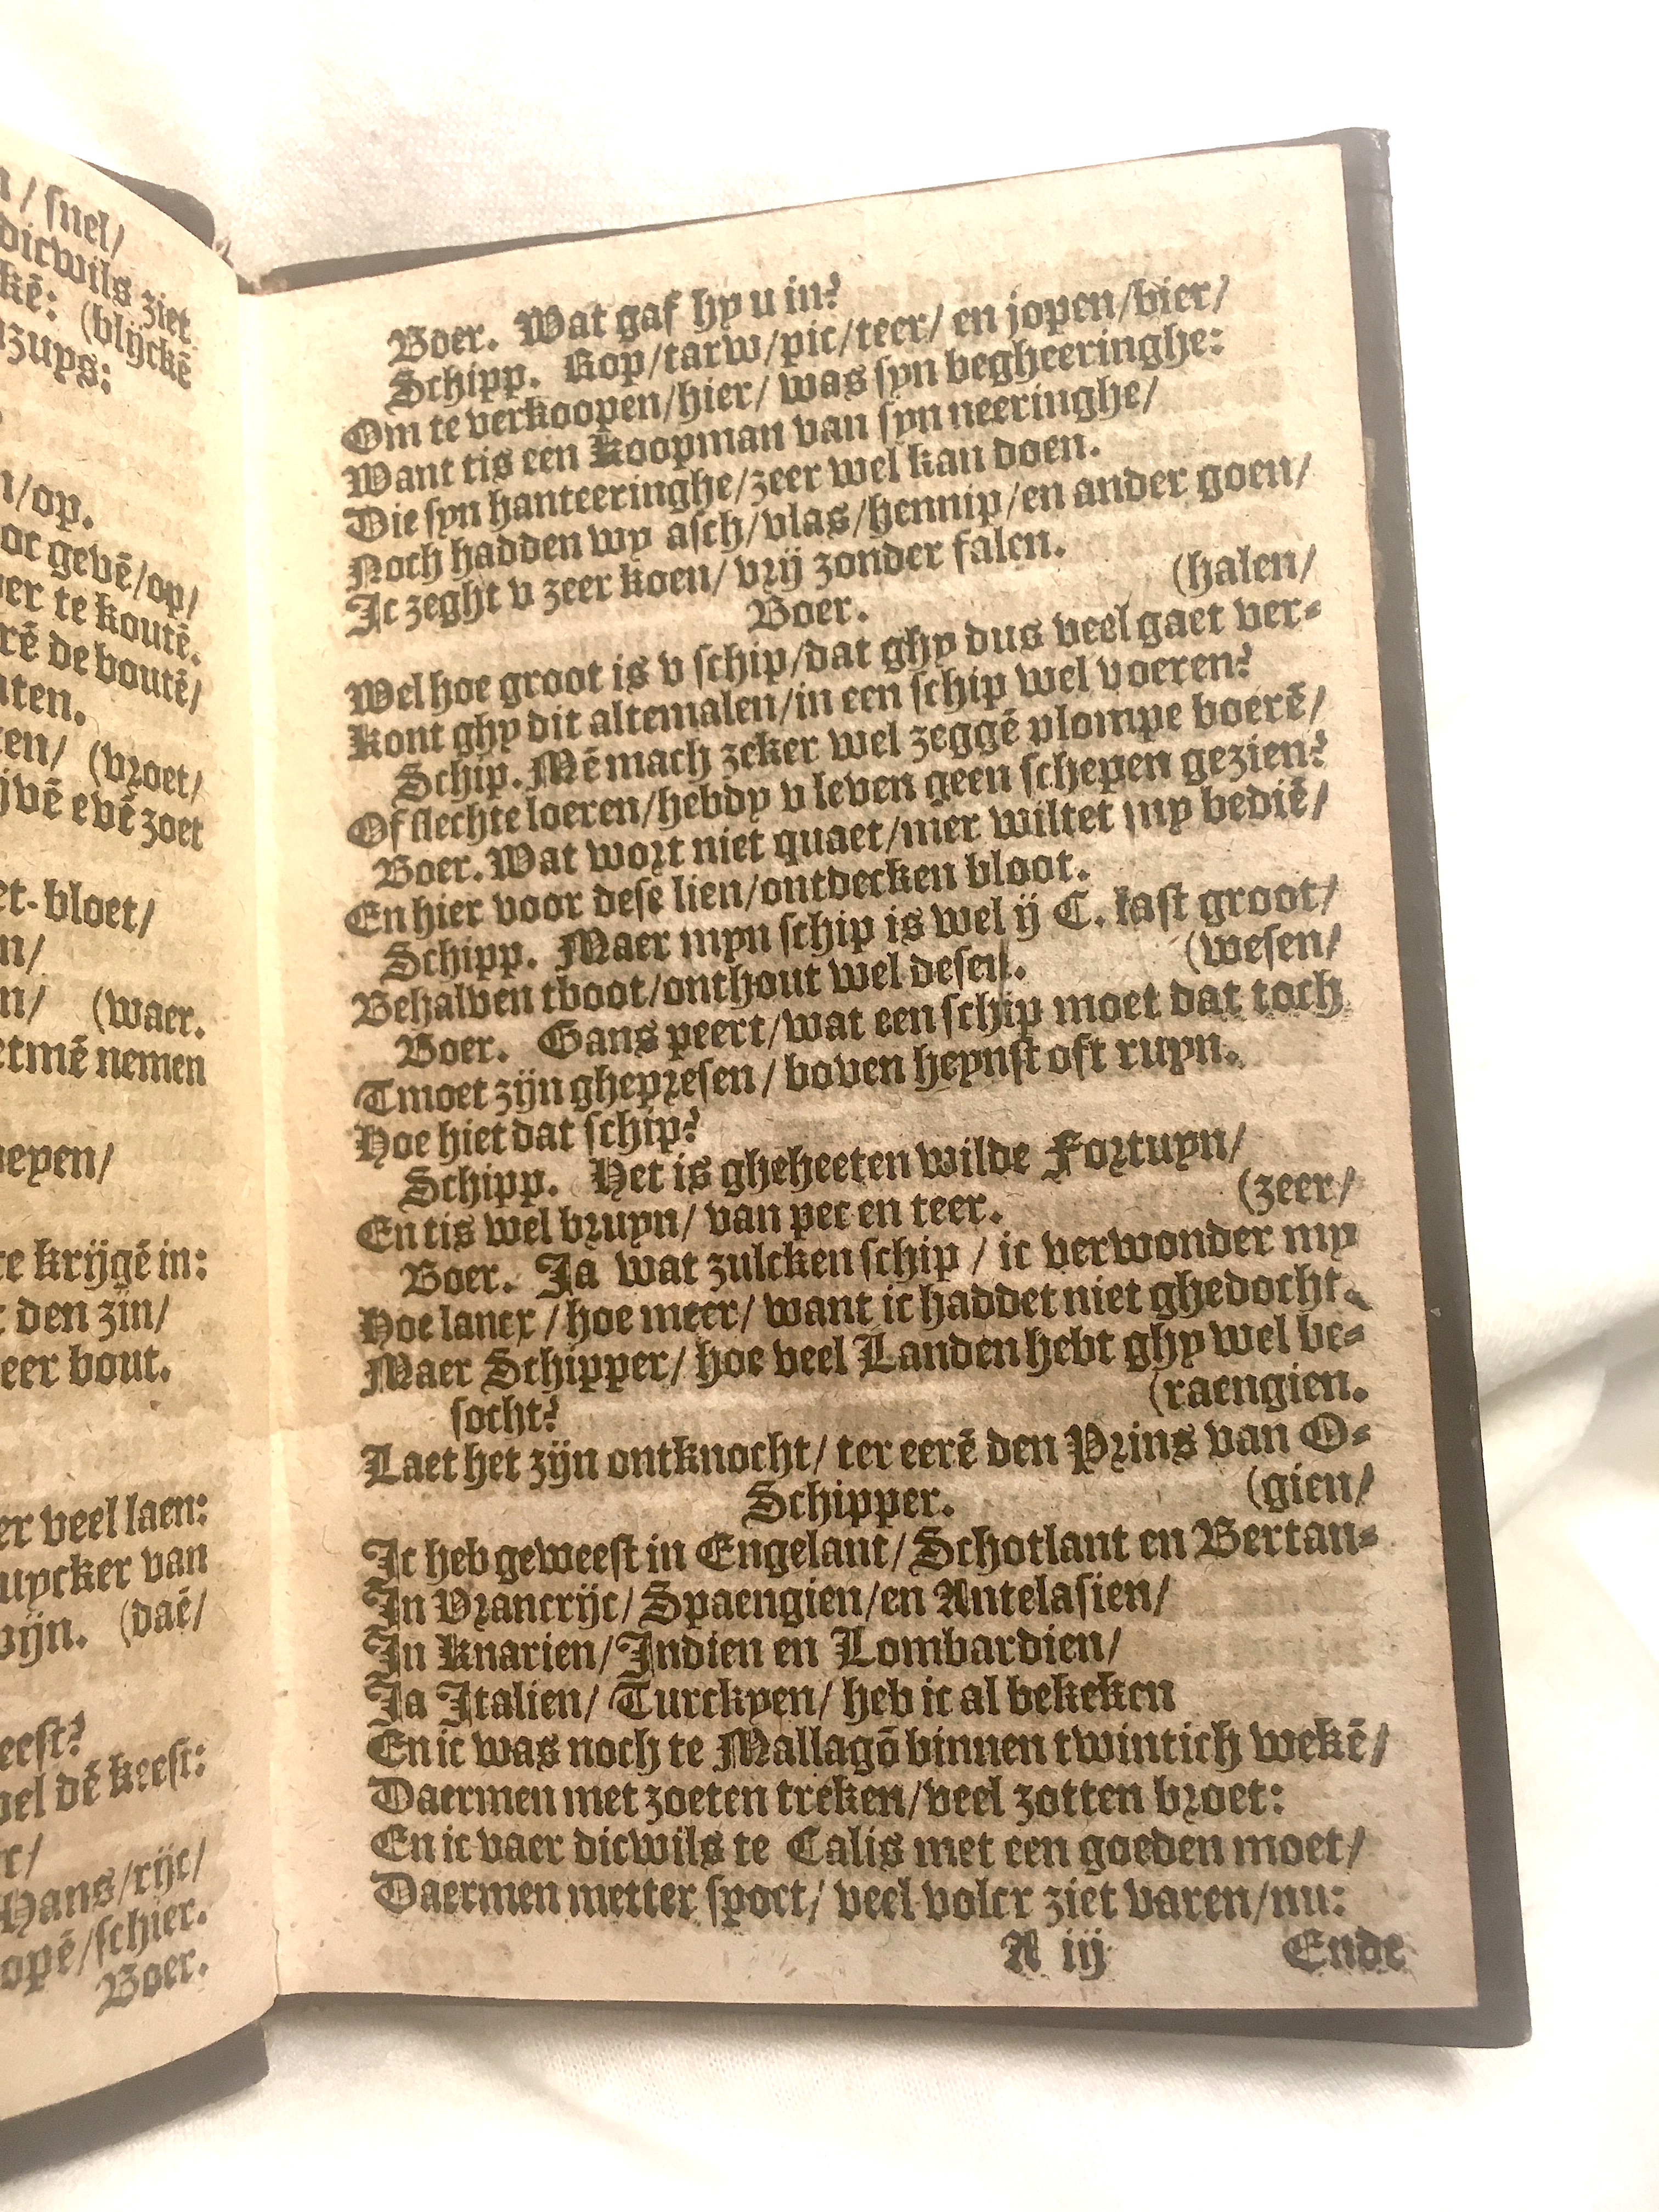 n / snel/
dicwils ziet
kē: (blijckē
nzups:
n/op.
oor gevē/op/
er te koutē.
rē de boutē/
aten.
en/ (vroet/
jvē evē zoet
et-bloet/
n/
n/ (waer.
etmē nemen
epen/
te krijgē in:
t den zin/
eer bout.
er veel laen:
uycker van
wijn. (daē/
eest?
wel dē keest:
Hans/rijc/
opē/schier.
Boer.
Boer. Wat gaf hy u in?
Schipp. Rop/tarw/pic/teer/ en jopen/bier/
Om te verkoopen/hier/ was syn begheeringhe:
Want tis een Koopman van syn neeringhe/
Die syn hanteeringhe/zeer wel kan doen.
Noch hadden wy asch/vlas/hennip/en ander goen/
Ic zeght v zeer koen/ vrij zonder falen.
Boer. (halen/
Wel hoe groot is v schip/dat ghy dus veel gaet ver-
Kont ghy dit altemalen/in een schip wel voeren?
Schip. Mē mach zeker wel zeggē plompe boerē/
Of slechte loeren/hebdy v leven geen schepen gezien?
Boer. Wat wort niet quaet/mer wiltet my bediē/
En hier voor dese lien/ontdecken bloot.
Schipp. Maer myn schip is wel ij C. last groot/
Behalven tboot/onthout wel desen. (wesen/
Boer. Gans peert/wat een schip moet dat toch
Tmoet zijn ghepresen/ boven heynst oft ruyn.
Hoe hiet dat schip?
Schipp. Het is gheheeten wilde Fortuyn/
En tis wel bruyn/ van pec en teer. (zeer/
Boer. Ja wat zulcken schip / ic verwonder my
Hoe lancx / hoe meer/ want ic haddet niet ghedocht.
Maer Schipper/ hoe veel Landen hebt ghy wel be-
socht? (raengien.
Laet het zijn ontknocht/ ter eerē den Prins van O-
Schipper. (gien/
Ic heb geweest in Engelant/Schotlant en Bertan-
In Vrancrijc/ Spaengien/en Antelasien/
In Knarien/Indien en Lombardien/
Ja Italien/ Turckyen/ heb ic al bekeken
En ic was noch te Mallagō binnen twintich wekē/
Daermen met zoeten treken/veel zotten broet:
En ic vaer dicwils te Calis met een goeden moet/
Daermen metter spoet/ veel volcx ziet varen/nu:
A iij Ende